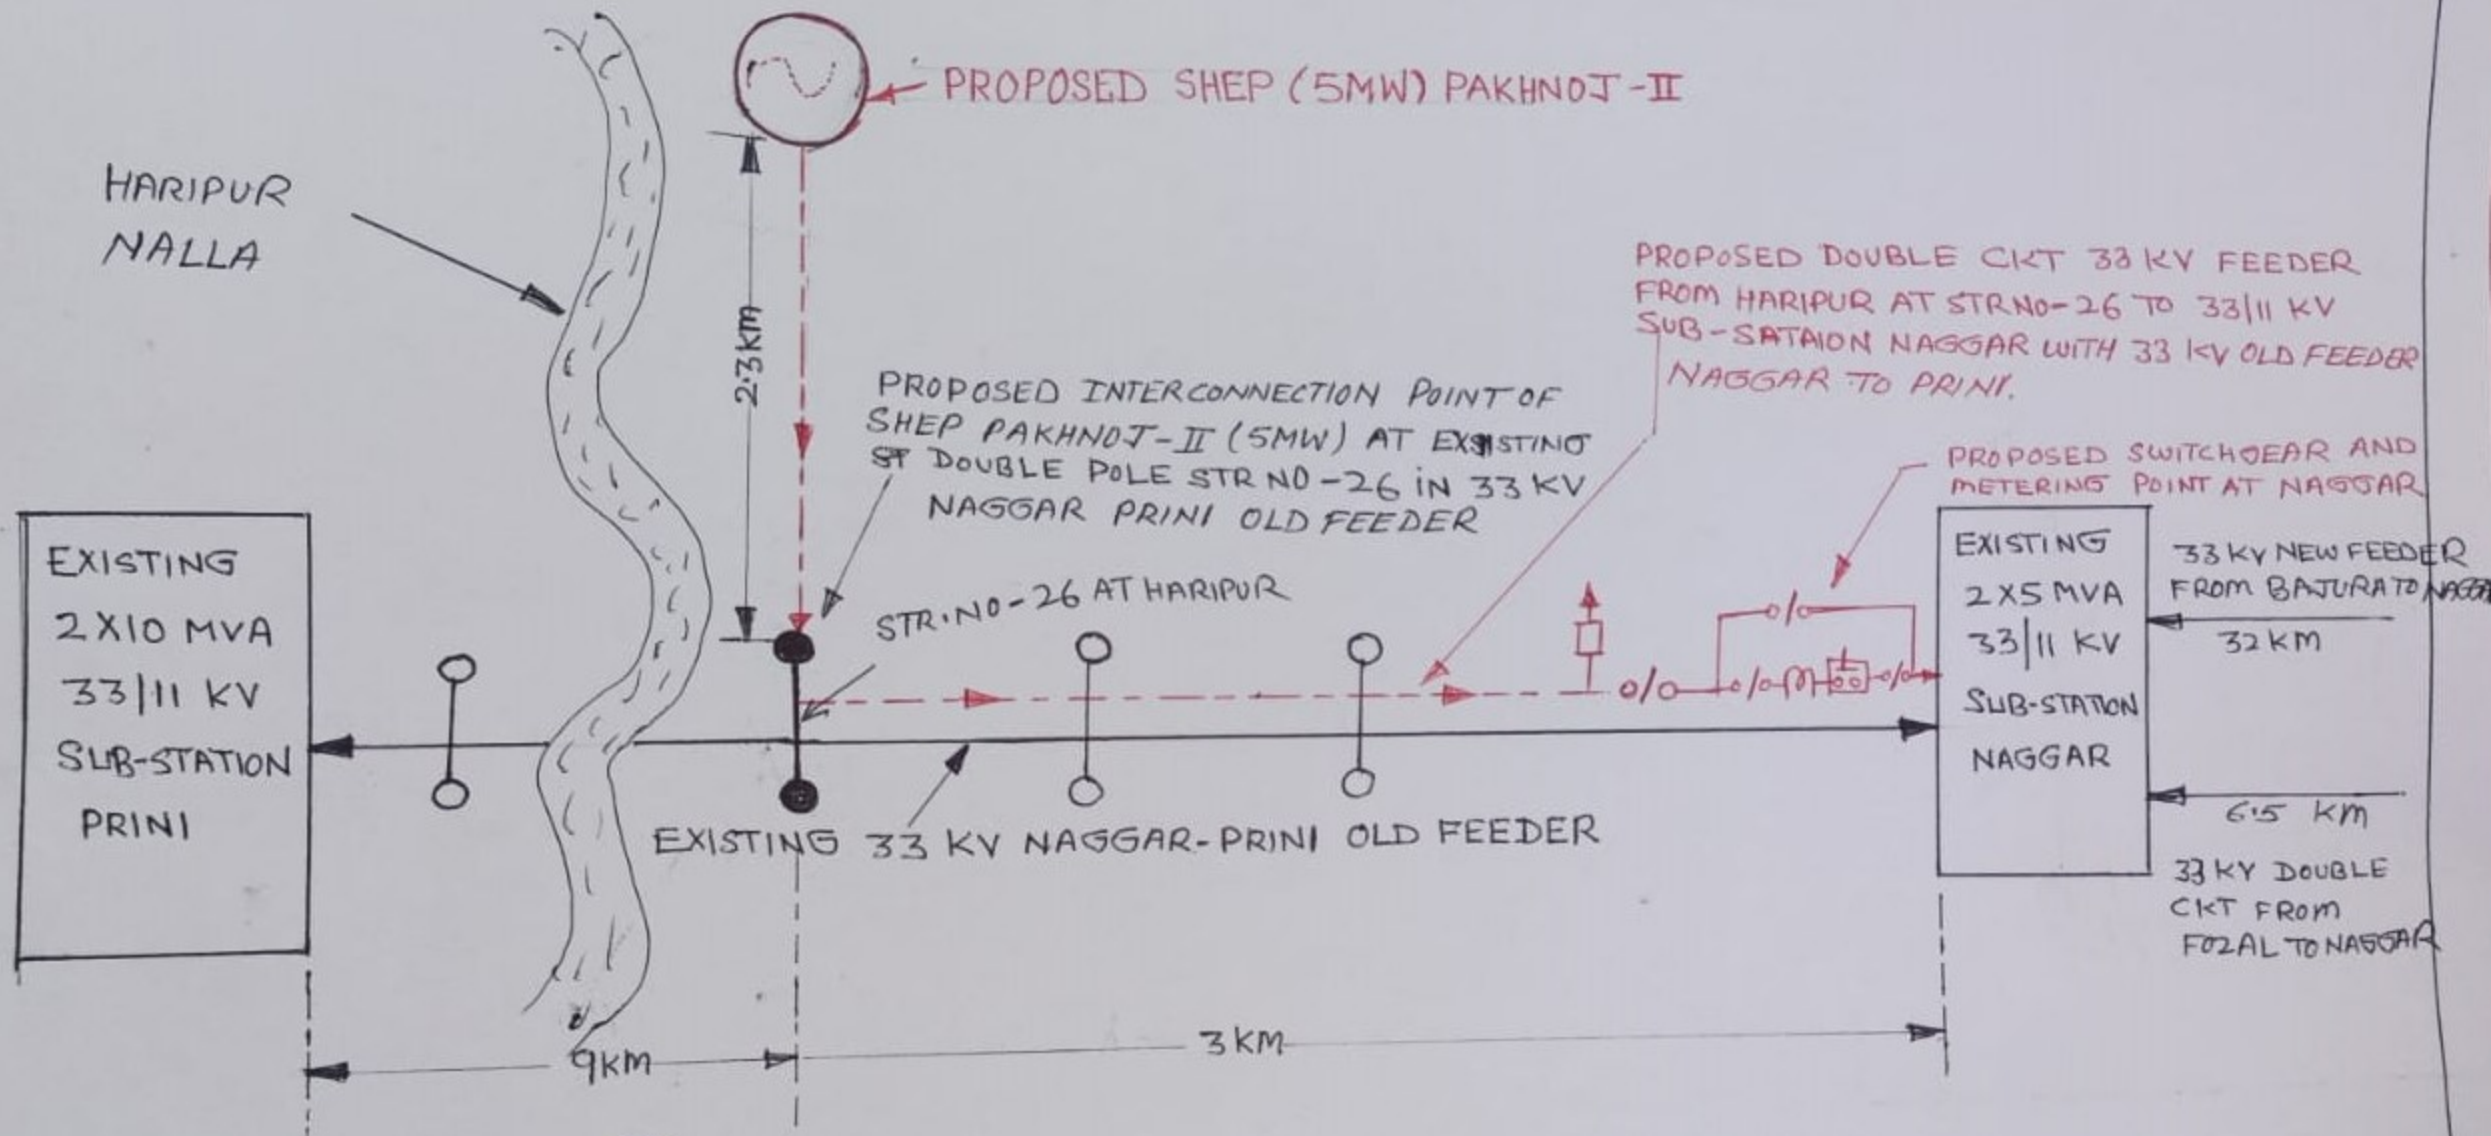 PROPOSED SHEP (5MW) PAKHNOJ-II
HARIPUR
NALLA
2.3KM
PROPOSED DOUBLE CKT 33 KV FEEDER
FROM HARIPUR AT STRNO-26 TO 33/11 KV
SUB-SATAION NAGGAR WITH 33 KV OLD FEEDER
NAGGAR TO PRINI.
PROPOSED INTERCONNECTION POINT OF
SHEP PAKHNOJ-II (5MW) AT EXSISTING
DOUBLE POLE STR NO-26 IN 33 KV
NAGGAR PRINI OLD FEEDER
PROPOSED SWITCHGEAR AND
METERING POINT AT NAGGAR
STR.NO-26 AT HARIPUR
EXISTING
2X10 MVA
33/11 KV
SUB-STATION
PRINI
EXISTING
2X5 MVA
33/11 KV
SUB-STATION
NAGGAR
33 KV NEW FEEDER
FROM BAJURA TO
32 KM
6.5 KM
33 KV DOUBLE
CKT FROM
FOZAL TO NAGGAR
EXISTING 33 KV NAGGAR-PRINI OLD FEEDER
9KM
3KM